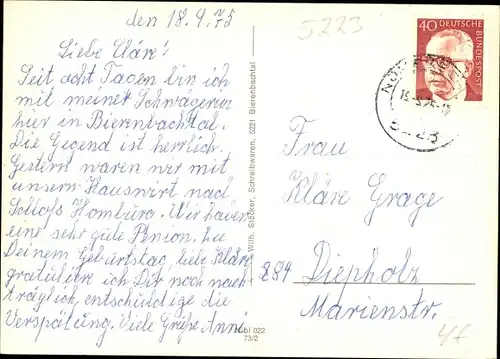 den 18.9.75
Liebe Kläre!
Seit acht Tagen bin ich
mit meiner Schwägerin
hier in Bierenbachtal.
Die Gegend ist herrlich.
Gestern waren wir mit
unserm Hauswirt nach
Schloß Homburg. Wir haben
eine sehr gute Pension. Zu
Deinem Geburtstag, liebe Kläre
gratuliere ich Dir noch nach-
träglich, entschuldige die
Verspätung. Viele Grüße Anni
Wilh. Stöcker, Schreibwaren, 5221 Bierenbachtal
022
73/2
5223
40 DEUTSCHE
BUNDESPOST
Frau
Kläre Grage
284 Diepholz
Marienstr.